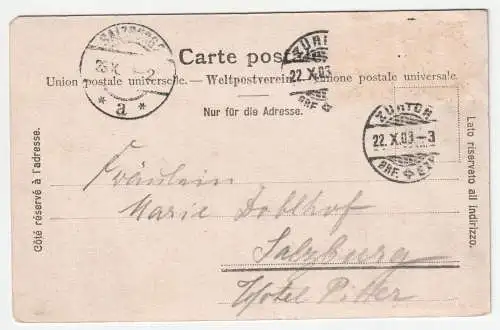 SALZBURG
23.X
2
* a *
Carte postale
ZÜRICH
22.X.03
BRF.
Union postale universelle. — Weltpostverein. — Unione postale universale.
Nur für die Adresse.
ZÜRICH
22.X.03-3
BRF. EXP.
Côté réservé à l'adresse.
Lato riservato all indirizzo.
Fräulein
Marie Doblhof
Salzburg
Hotel Pitter